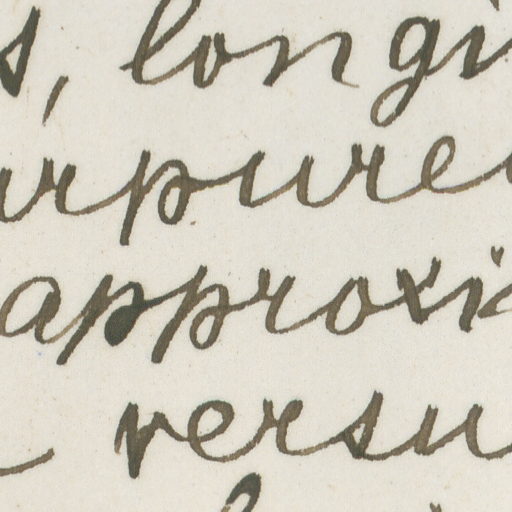 s, longi
urpure
approxi
versu